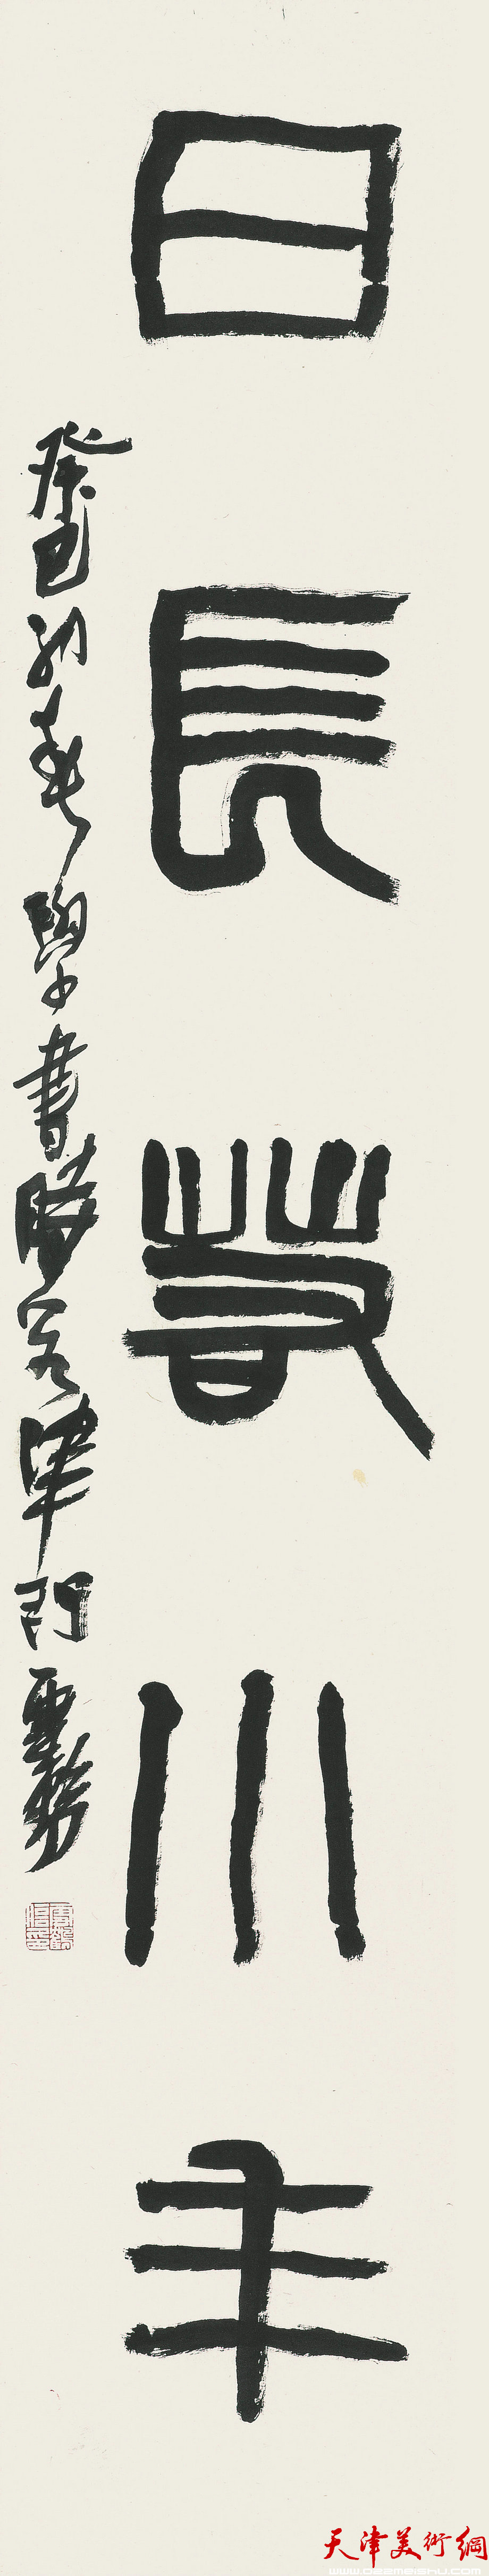 日長若小年
癸巳初春學書時客津門
天津美術網
www.022meishu.com